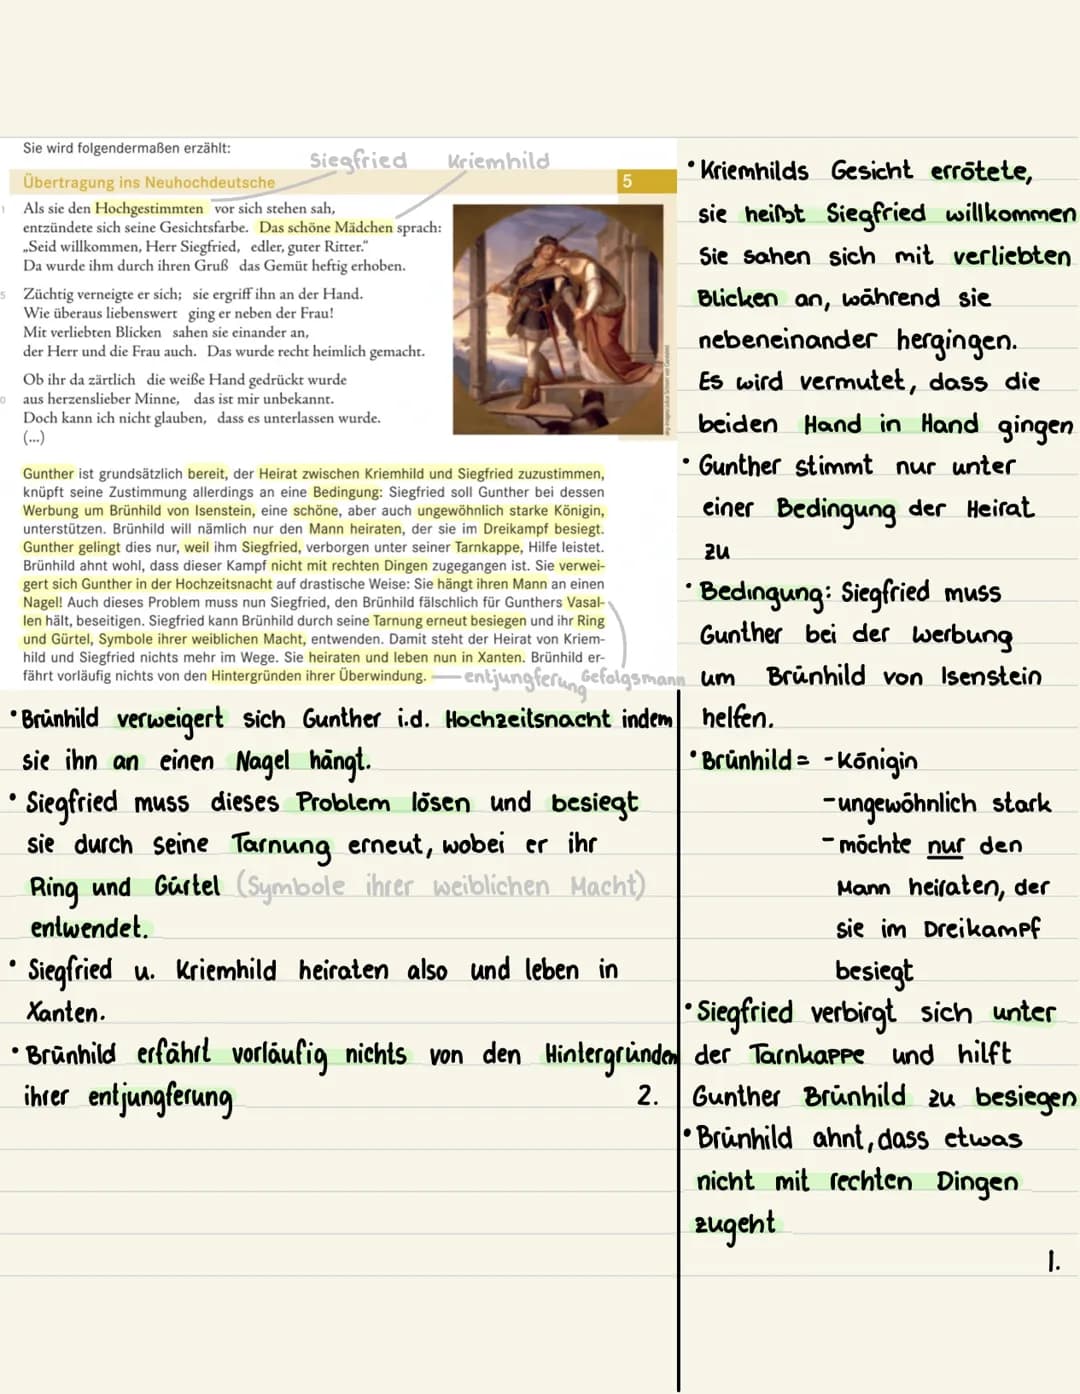 Sie wird folgendermaßen erzählt:
Siegfried Kriemhild
Übertragung ins Neuhochdeutsche 5
1 Als sie den Hochgestimmten vor sich stehen sah,
entzündete sich seine Gesichtsfarbe. Das schöne Mädchen sprach:
„Seid willkommen, Herr Siegfried, edler, guter Ritter."
Da wurde ihm durch ihren Gruß das Gemüt heftig erhoben.
5 Züchtig verneigte er sich; sie ergriff ihn an der Hand.
Wie überaus liebenswert ging er neben der Frau!
Mit verliebten Blicken sahen sie einander an,
der Herr und die Frau auch. Das wurde recht heimlich gemacht.
Ob ihr da zärtlich die weiße Hand gedrückt wurde
0 aus herzenslieber Minne, das ist mir unbekannt.
Doch kann ich nicht glauben, dass es unterlassen wurde.
(...)
Gunther ist grundsätzlich bereit, der Heirat zwischen Kriemhild und Siegfried zuzustimmen,
knüpft seine Zustimmung allerdings an eine Bedingung: Siegfried soll Gunther bei dessen
Werbung um Brünhild von Isenstein, eine schöne, aber auch ungewöhnlich starke Königin,
unterstützen. Brünhild will nämlich nur den Mann heiraten, der sie im Dreikampf besiegt.
Gunther gelingt dies nur, weil ihm Siegfried, verborgen unter seiner Tarnkappe, Hilfe leistet.
Brünhild ahnt wohl, dass dieser Kampf nicht mit rechten Dingen zugegangen ist. Sie verwei-
gert sich Gunther in der Hochzeitsnacht auf drastische Weise: Sie hängt ihren Mann an einen
Nagel! Auch dieses Problem muss nun Siegfried, den Brünhild fälschlich für Gunthers Vasal-
len hält, beseitigen. Siegfried kann Brünhild durch seine Tarnung erneut besiegen und ihr Ring
und Gürtel, Symbole ihrer weiblichen Macht, entwenden. Damit steht der Heirat von Kriem-
hild und Siegfried nichts mehr im Wege. Sie heiraten und leben nun in Xanten. Brünhild er-
fährt vorläufig nichts von den Hintergründen ihrer Überwindung.
entjungferung Gefolgsmann
• Kriemhilds Gesicht errötete,
sie heißt Siegfried willkommen
Sie sahen sich mit verliebten
Blicken an, während sie
nebeneinander hergingen.
Es wird vermutet, dass die
beiden Hand in Hand gingen
• Gunther stimmt nur unter
einer Bedingung der Heirat
zu
• Bedingung: Siegfried muss
Gunther bei der werbung
um Brünhild von Isenstein
helfen.
• Brünhild = - Königin
- ungewöhnlich stark
- möchte nur den
Mann heiraten, der
sie im Dreikampf
besiegt
• Siegfried verbirgt sich unter
der Tarnkappe und hilft
Gunther Brünhild zu besiegen
• Brünhild ahnt, dass etwas
nicht mit rechten Dingen
zugeht
1.
• Brünhild verweigert sich Gunther i.d. Hochzeitsnacht indem
sie ihn an einen Nagel hängt.
• Siegfried muss dieses Problem lösen und besiegt
sie durch seine Tarnung erneut, wobei er ihr
Ring und Gürtel (Symbole ihrer weiblichen Macht)
entwendet.
• Siegfried u. Kriemhild heiraten also und leben in
Xanten.
• Brünhild erfährt vorläufig nichts von den Hintergründen
ihrer entjungferung
2.